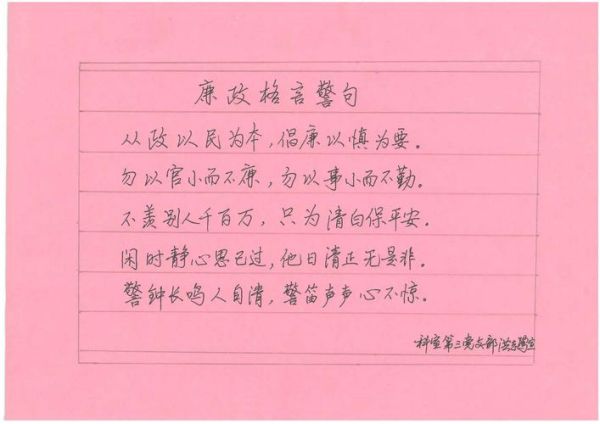 廉政格言警句
从政以民为本，倡廉以慎为要。
勿以官小而不廉，勿以事小而不勤。
不羡别人千百万，只为清白保平安。
闲时静心思己过，他日清正无是非。
警钟长鸣人自清，警笛声声心不惊。
科室第三党支部